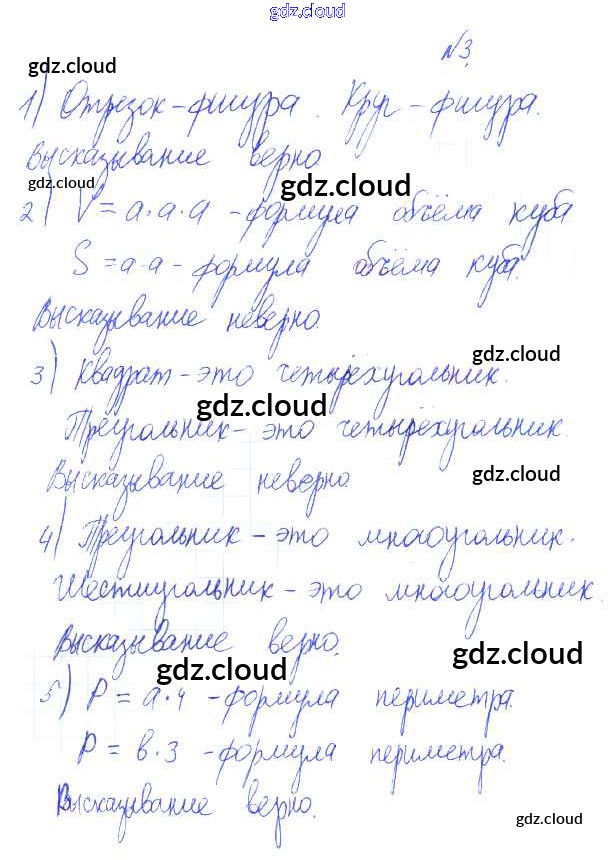 gdz.cloud
№3
gdz.cloud
1) Отрезок – фигура. Круг – фигура.
Высказывание верно
gdz.cloud
gdz.cloud
2) V = a·a·a – формула объёма куба
S = a·a – формула объёма куба.
Высказывание неверно.
gdz.cloud
3) Квадрат – это четырёхугольник.
gdz.cloud
Треугольник – это четырёхугольник.
Высказывание неверно
gdz.cloud
4) Треугольник – это многоугольник.
Шестиугольник – это многоугольник.
Высказывание верно.
gdz.cloud
gdz.cloud
5) P = a·4 – формула периметра.
P = b·3 – формула периметра.
Высказывание верно.
gdz.cloud